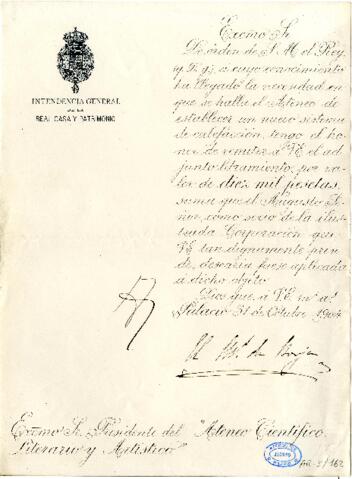 INTENDENCIA GENERAL
DE LA
REAL CASA Y PATRIMONIO
Excmo Sr.
De orden de S. M. el Rey
q. D. g., a cuyo conocimiento
ha llegado la necesidad en
que se halla el Ateneo de
establecer un nuevo sistema
de calefacción, tengo el ho-
nor de remitir a V.E. el ad-
junto libramiento, por va-
lor de diez mil pesetas,
suma que el Augusto Se-
ñor, como socio de la ilus-
trada Corporación que
V.E. tan dignamente presi-
de, desearía fuese aplicada
a dicho objeto.
Dios gue. a V.E. ms. as.
Palacio 31 de Octubre 1904
El Ms. de Borja
Excmo Sr. Presidente del "Ateneo Científico,
Literario y Artístico"